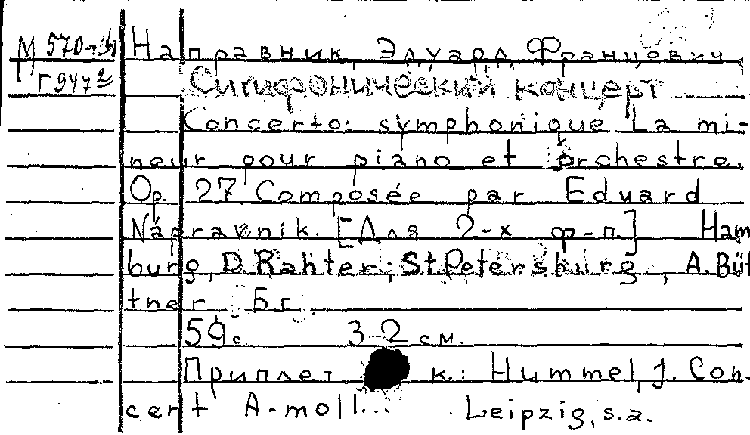 М 570-
Г 947²
Направник, Эдуард Францович.
Симфонический концерт
Concerto: symphonique La mi-
neur pour piano et orchestre.
Op. 27 Composée par Eduard
Napravnik. [Для 2-х ф-п.] Ham
burg, D. Rahter; St. Petersburg, A. Büt
tner. Б.г.
59 с. 32 см.
Приплет к: Hummel, J. Con-
cert A-moll... Leipzig, s.a.